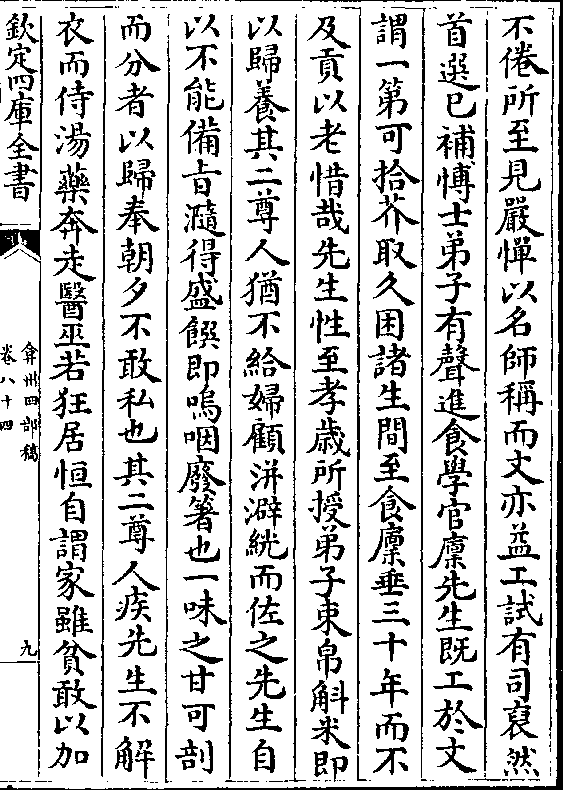 不倦所至見嚴憚以名師稱而文亦益工試有司裒然
首選已補博士弟子有聲進食學官廩先生既工於文
謂一第可拾芥取久困諸生間至食廩垂三十年而不
及貢以老惜哉先生性至孝歲所授弟子束帛斛米即
以歸養其二尊人猶不給婦顧洴澼絖而佐之先生自
以不能備旨瀡得盛饌即嗚咽廢箸也一味之甘可剖
而分者以歸奉朝夕不敢私也其二尊人疾先生不解
衣而侍湯藥奔走醫巫若狂居恒自謂家雖貧敢以加
欽定四庫全書
弇州四部稿
卷八十四
九